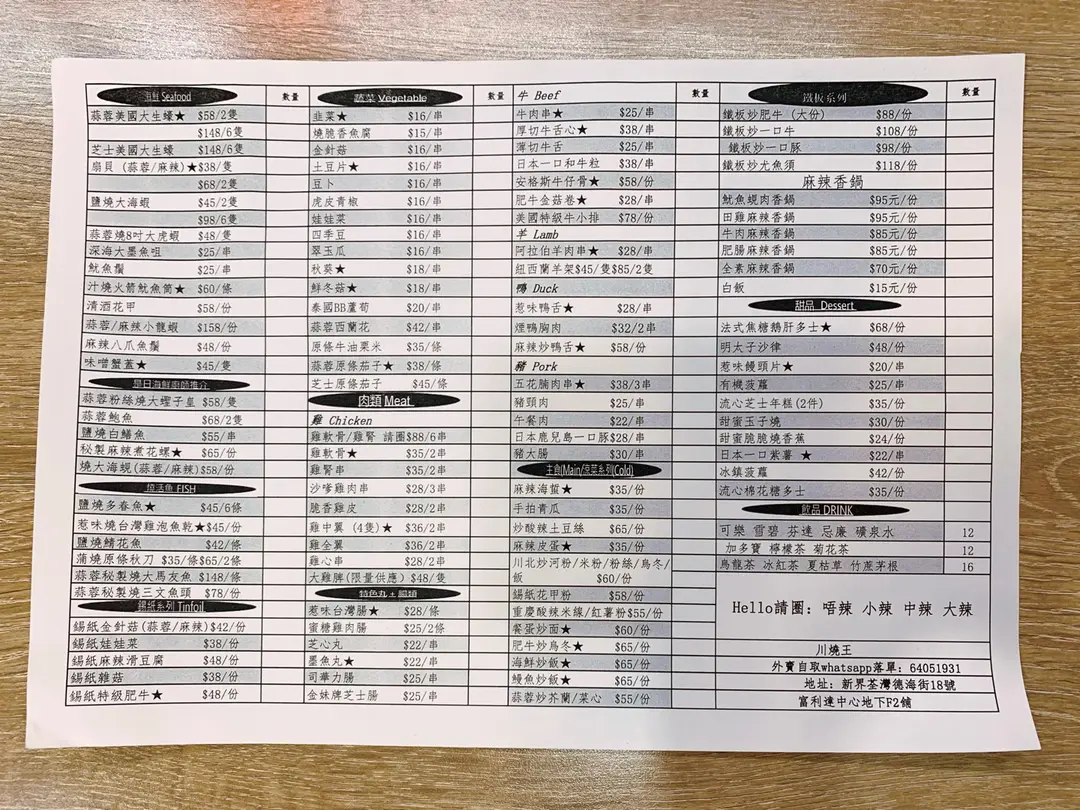 海鮮 Seafood
數量
蒜蓉美國大生蠔★ $58/2隻
$148/6隻
芝士美國大生蠔 $148/6隻
扇貝 (蒜蓉/麻辣)★$38/隻
$68/2隻
鹽燒大海蝦 $45/2隻
$98/6隻
蒜蓉燒8吋大虎蝦 $48/隻
深海大墨魚咀 $25/串
魷魚鬚 $25/串
汁燒火箭魷魚筒★ $60/條
清酒花甲 $58/份
蒜蓉/麻辣小龍蝦 $158/份
麻辣八爪魚鬚 $48/份
味噌蟹蓋★ $45/隻
是日海鮮廚師推介
蒜蓉粉絲燒大蟶子皇 $58/隻
蒜蓉鮑魚 $68/2隻
鹽燒白鱔魚 $55/串
秘製麻辣煮花螺★ $65/份
燒大海蜆(蒜蓉/麻辣)$58/份
燒活魚 FISH
鹽燒多春魚★ $45/6條
惹味燒台灣雞泡魚乾★$45/份
鹽燒鯖花魚 $42/條
蒲燒原條秋刀 $35/條$65/2條
蒜蓉秘製燒大馬友魚 $148/條
蒜蓉秘製燒三文魚頭 $78/份
錫紙系列 Tinfoil
錫紙金針菇(蒜蓉/麻辣)$42/份
錫紙娃娃菜 $38/份
錫紙麻辣滑豆腐 $48/份
錫紙雜菇 $38/份
錫紙特級肥牛★ $48/份
蔬菜 Vegetable
數量
韭菜★ $16/串
燒脆香魚腐 $15/串
金針菇 $16/串
土豆片★ $16/串
豆卜 $16/串
虎皮青椒 $16/串
娃娃菜 $16/串
四季豆 $16/串
翠玉瓜 $16/串
秋葵★ $18/串
鮮冬菇★ $18/串
泰國BB蘆筍 $20/串
蒜蓉西蘭花 $42/串
原條牛油粟米 $35/條
蒜蓉原條茄子★ $38/條
芝士原條茄子 $45/條
肉類 Meat
雞 Chicken
雞軟骨/雞腎 請圈$88/6串
雞軟骨★ $35/2串
雞腎串 $35/2串
沙爹雞肉串 $28/3串
脆香雞皮 $28/2串
雞中翼 (4隻)★ $36/2串
雞全翼 $36/2串
雞心串 $28/2串
大雞髀(限量供應) $48/隻
特色丸+腸類
惹味台灣腸★ $28/條
蜜糖雞肉腸 $25/2條
芝心丸 $22/串
墨魚丸★ $22/串
司華力腸 $25/串
金妹牌芝士腸 $25/串
牛 Beef
數量
牛肉串★ $25/串
厚切牛舌心★ $38/串
薄切牛舌 $25/串
日本一口和牛粒 $38/串
安格斯牛仔骨★ $58/份
肥牛金菇卷★ $28/串
美國特級牛小排 $78/份
羊 Lamb
阿拉伯羊肉串★ $28/串
紐西蘭羊架$45/隻$85/2隻
鴨 Duck
惹味鴨舌★ $28/串
煙鴨胸肉 $32/2串
麻辣炒鴨舌★ $58/份
豬 Pork
五花腩肉串★ $38/3串
豬頸肉 $25/串
午餐肉 $22/串
日本鹿兒島一口豚$28/串
豬大腸 $30/串
主食(Main/涼菜系列(Cold)
麻辣海蜇★ $35/份
手拍青瓜 $35/份
炒酸辣土豆絲 $65/份
麻辣皮蛋★ $35/份
川北炒河粉/米粉/粉絲/烏冬/
飯 $60/份
錫紙花甲粉 $58/份
重慶酸辣米線/紅薯粉$55/份
餐蛋炒面★ $60/份
肥牛炒烏冬★ $65/份
海鮮炒飯★ $65/份
鰻魚炒飯★ $65/份
蒜蓉炒芥蘭/菜心 $55/份
鐵板系列
數量
鐵板炒肥牛 (大份) $88/份
鐵板炒一口牛 $108/份
鐵板炒一口豚 $98/份
鐵板炒尤魚須 $118/份
麻辣香鍋
魷魚蜆肉香鍋 $95元/份
田雞麻辣香鍋 $95元/份
牛肉麻辣香鍋 $85元/份
肥腸麻辣香鍋 $85元/份
全素麻辣香鍋 $70元/份
白飯 $15元/份
甜品 Dessert
法式焦糖鵝肝多士★ $68/份
明太子沙律 $48/份
惹味饅頭片★ $20/串
有機菠蘿 $25/串
流心芝士年糕(2件) $35/份
甜蜜玉子燒 $30/份
甜蜜脆脆燒香蕉 $24/份
日本一口紫薯 ★ $22/串
冰鎮菠蘿 $42/份
流心棉花糖多士 $35/份
飲品 DRINK
可樂 雪碧 芬達 忌廉 礦泉水 12
加多寶 檸檬茶 菊花茶 12
烏龍茶 冰紅茶 夏枯草 竹蔗茅根 16
Hello請圈: 唔辣 小辣 中辣 大辣
川燒王
外賣自取whatsapp落單: 64051931
地址: 新界荃灣德海街18號
富利達中心地下F2舖